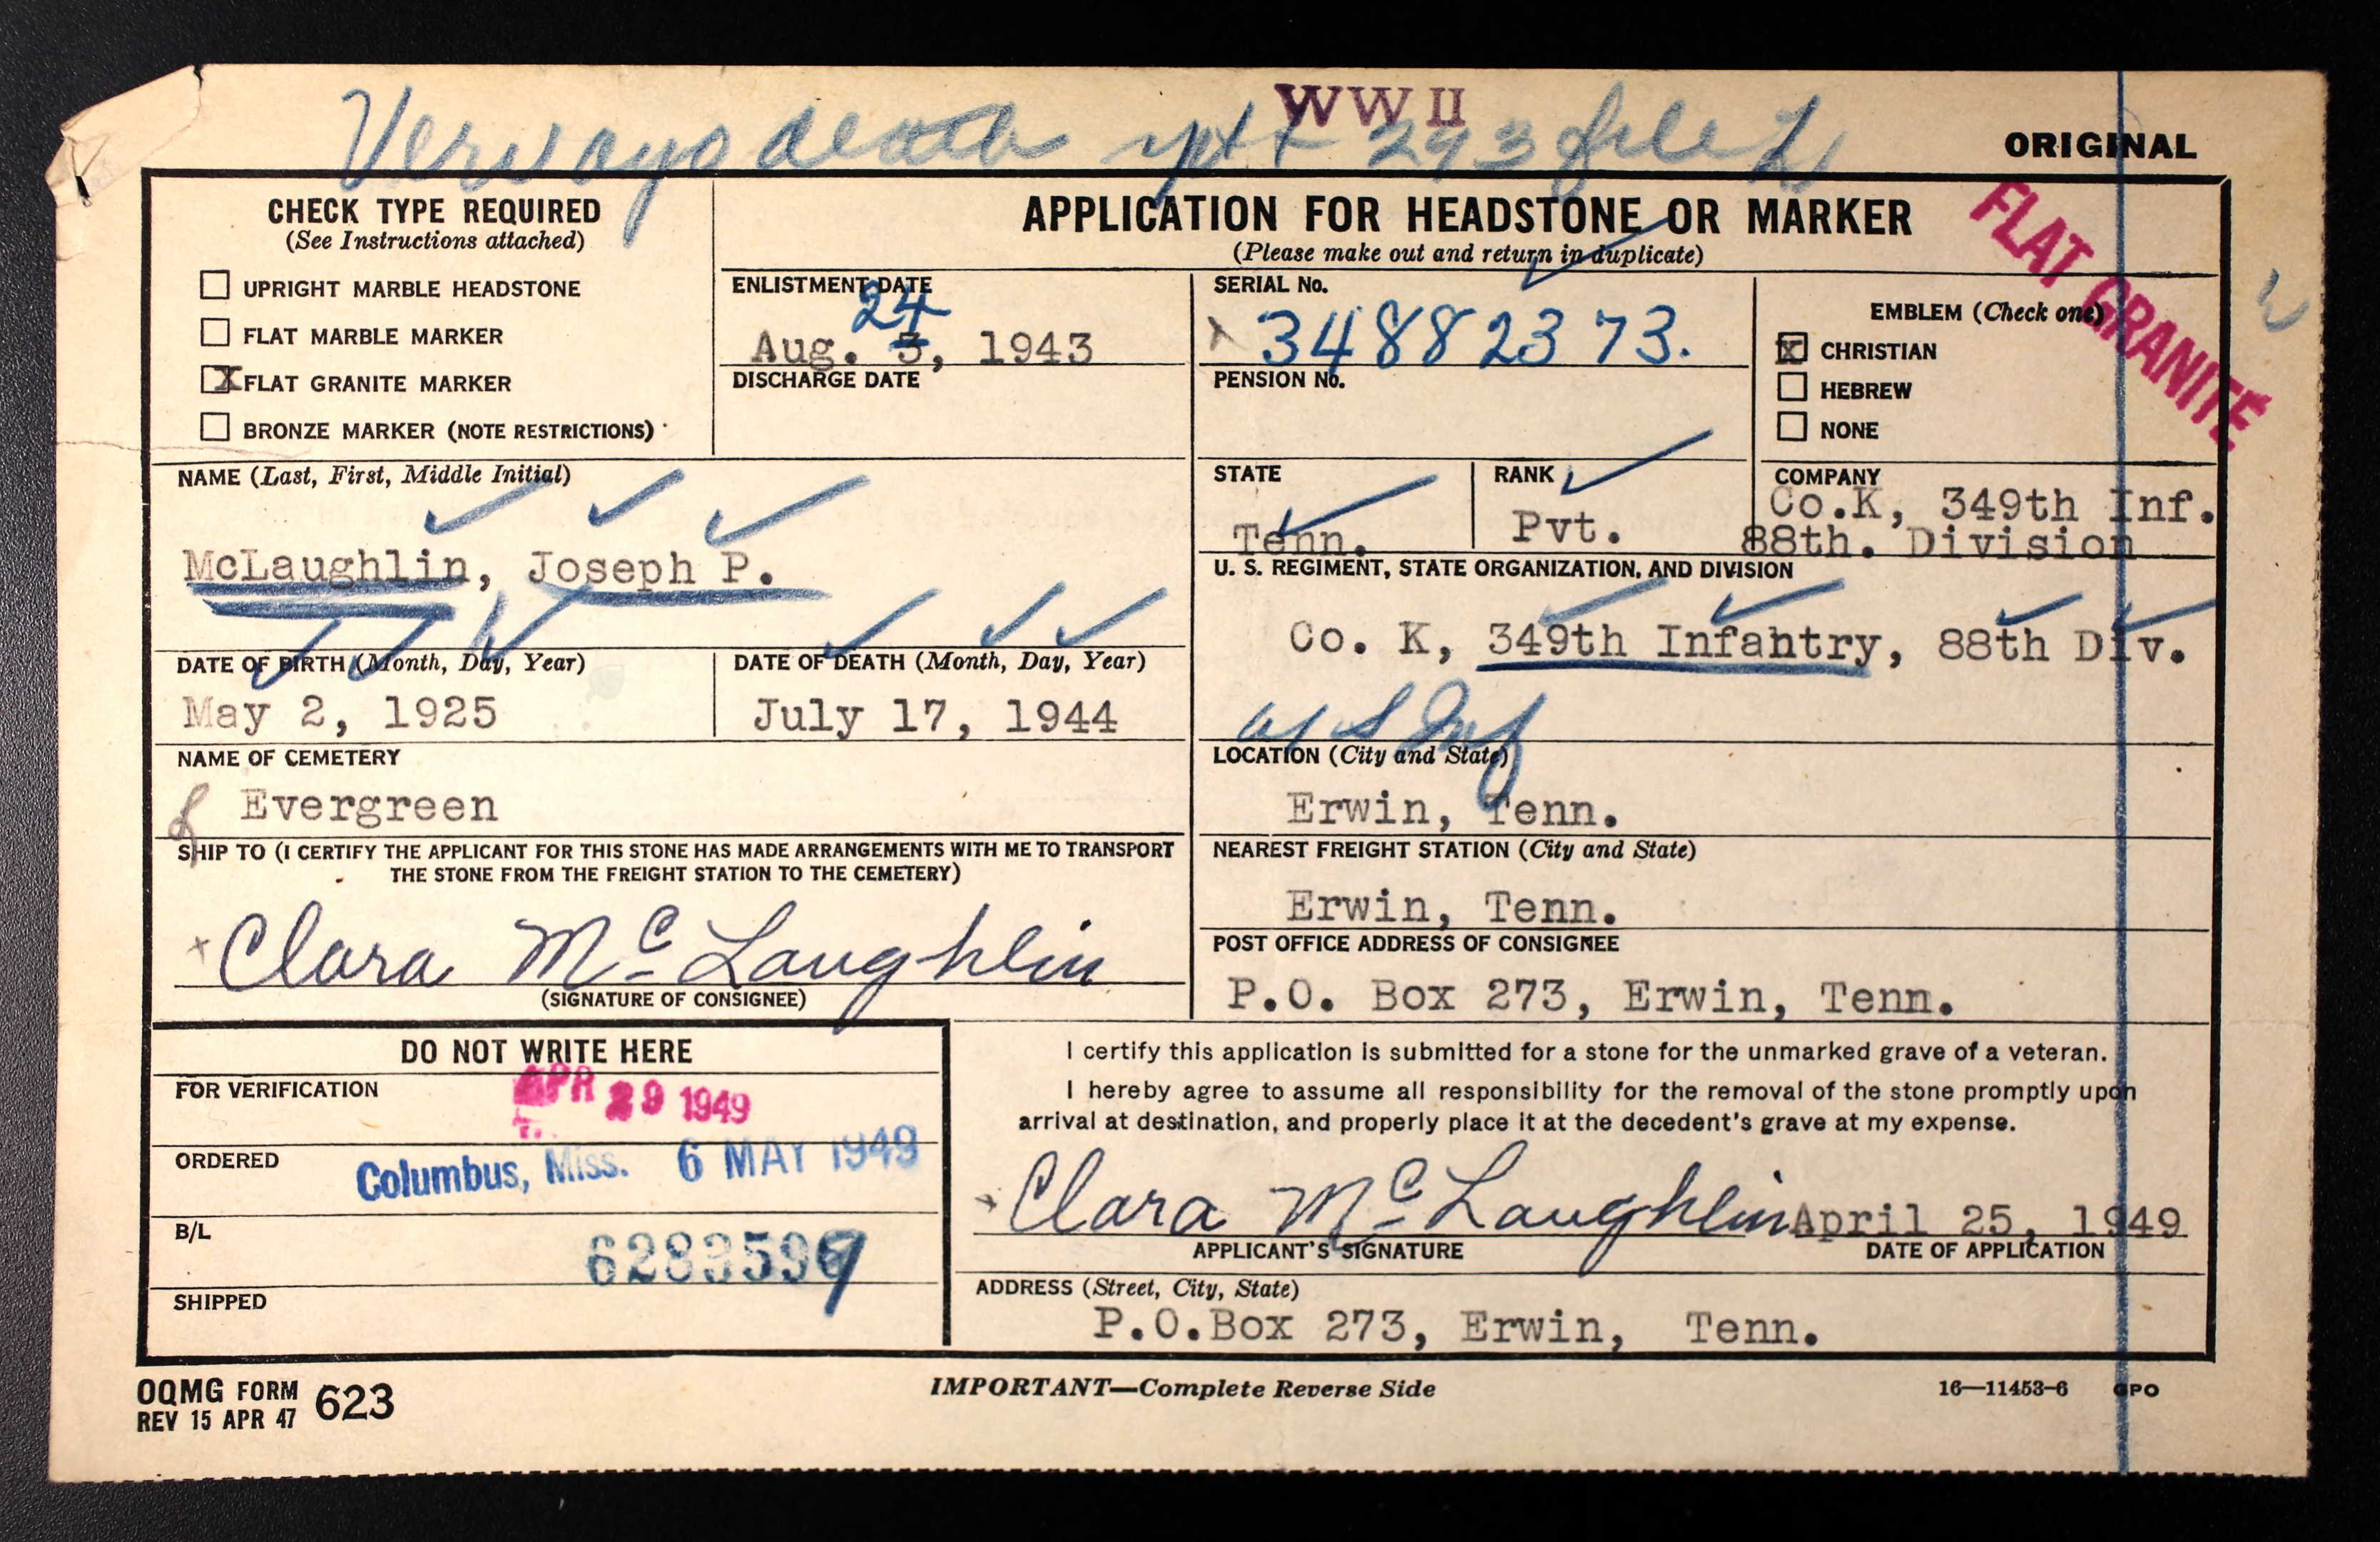 WW II
death
293 file
ORIGINAL
CHECK TYPE REQUIRED
(See Instructions attached)
UPRIGHT MARBLE HEADSTONE
FLAT MARBLE MARKER
X FLAT GRANITE MARKER
BRONZE MARKER (NOTE RESTRICTIONS)
APPLICATION FOR HEADSTONE OR MARKER
(Please make out and return in duplicate)
FLAT GRANITE
ENLISTMENT DATE
24
Aug. 3, 1943
DISCHARGE DATE
SERIAL No.
34882373.
PENSION No.
EMBLEM (Check one)
X CHRISTIAN
HEBREW
NONE
NAME (Last, First, Middle Initial)
McLaughlin, Joseph P.
STATE
Tenn.
RANK
Pvt.
COMPANY
Co.K, 349th Inf.
88th. Division
U. S. REGIMENT, STATE ORGANIZATION, AND DIVISION
Co. K, 349th Infantry, 88th Div.
US Inf
DATE OF BIRTH (Month, Day, Year)
May 2, 1925
DATE OF DEATH (Month, Day, Year)
July 17, 1944
NAME OF CEMETERY
Evergreen
LOCATION (City and State)
Erwin, Tenn.
SHIP TO (I CERTIFY THE APPLICANT FOR THIS STONE HAS MADE ARRANGEMENTS WITH ME TO TRANSPORT
THE STONE FROM THE FREIGHT STATION TO THE CEMETERY)
Clara McLaughlin
(SIGNATURE OF CONSIGNEE)
NEAREST FREIGHT STATION (City and State)
Erwin, Tenn.
POST OFFICE ADDRESS OF CONSIGNEE
P.O. Box 273, Erwin, Tenn.
DO NOT WRITE HERE
FOR VERIFICATION
APR 29 1949
ORDERED
Columbus, Miss. 6 MAY 1949
B/L
SHIPPED
I certify this application is submitted for a stone for the unmarked grave of a veteran.
I hereby agree to assume all responsibility for the removal of the stone promptly upon
arrival at destination, and properly place it at the decedent's grave at my expense.
Clara McLaughlin April 25, 1949
APPLICANT'S SIGNATURE
DATE OF APPLICATION
ADDRESS (Street, City, State)
P.O.Box 273, Erwin, Tenn.
OQMG FORM 623
REV 15 APR 47
IMPORTANT—Complete Reverse Side
16—11453-6 GPO